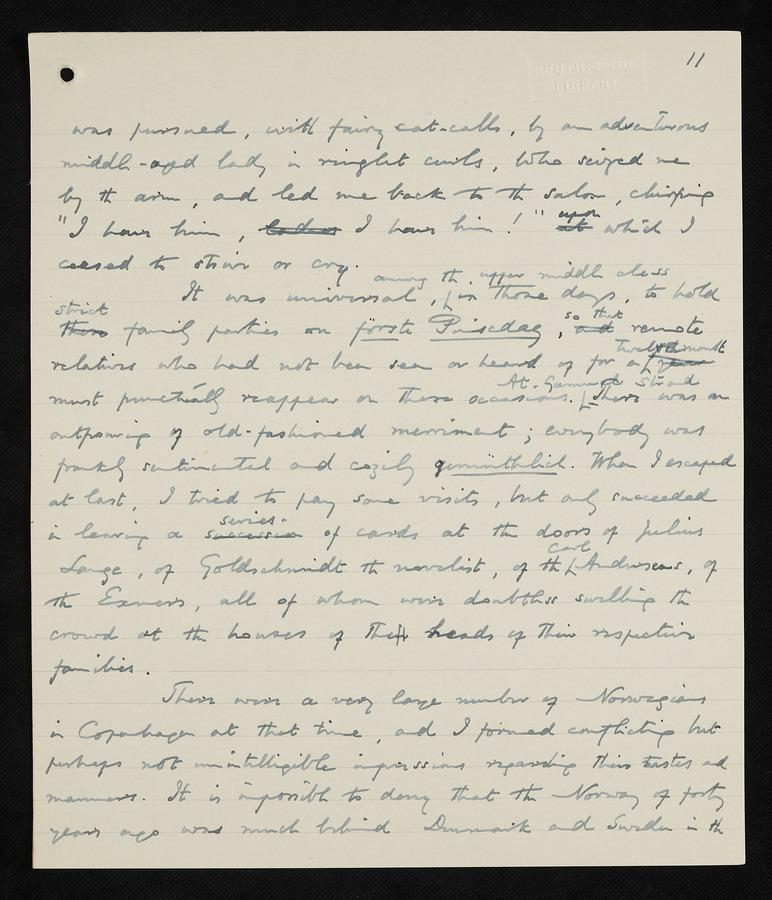 11
was pursued, with fairy cat-calls, by an adventurous
middle-aged lady in ringlet curls, who seized me
by the arm, and led me back to the salon, chirping
"I have him, I have him!" upon at which I
ceased to strive or cry.
among the upper middle class
It was universal, in those days, to hold
strict
family parties on förste Juledag, so that and remote
relatives who had not been seen or heard of for a twelvemonth year
must punctually reappear on these occasions. At Gammel Strand there was an
outpouring of old-fashioned merriment; everybody was
frankly sentimental and cozily gemüthlich. When I escaped
at last, I tried to pay some visits, but only succeeded
series
in leaving a succession of cards at the doors of Julius
Carl
Lange, of Goldschmidt the novelist, of the Andersens, of
the Exners, all of whom were doubtless swelling the
crowd at the houses of the heads of their respective
families.
There were a very large number of Norwegians
in Copenhagen at that time, and I formed conflicting but
perhaps not unintelligible impressions regarding their tastes and
manners. It is impossible to deny that the Norway of forty
years ago was much behind Denmark and Sweden in the